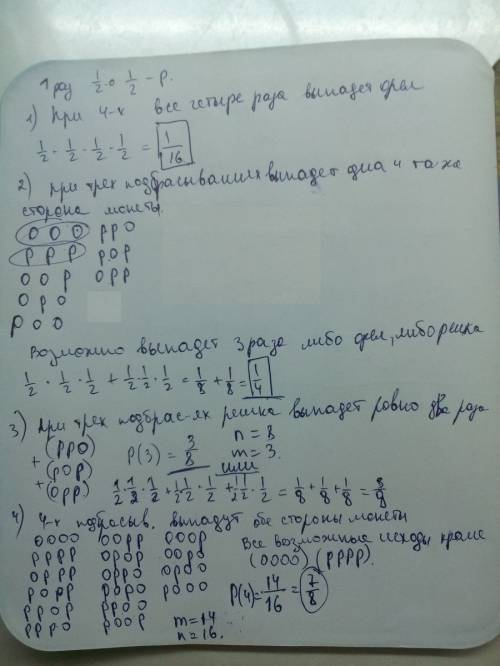 1 раз 1/2 о 1/2 - р.
1) При 4-х все четыре раза выпадет орел
1/2 · 1/2 · 1/2 · 1/2 = 1/16
2) при трех подбрасываниях выпадет одна и та же
сторона монеты.
о о о р р о
р р р р о р
о о р о р р
о р о
р о о
Возможно выпадет 3 раза либо орел, либо решка
1/2 · 1/2 · 1/2 + 1/2 · 1/2 · 1/2 = 1/8 + 1/8 = 1/4
3) При трех подбрас-ях решка выпадет ровно два раза
(рро)
+ (рор)
+ (орр)
P(3) = 3/8 n = 8
m = 3.
или
1/2 · 1/2 · 1/2 + 1/2 · 1/2 · 1/2 + 1/2 · 1/2 · 1/2 = 1/8 + 1/8 + 1/8 = 3/8
4) 4-х подбрасыв. выпадут обе стороны монеты
оооо оорр ооор
рррр
Все возможные исходы кроме
(оооо) (рррр).
P(4) = 14/16 = 7/8
m = 14
n = 16.